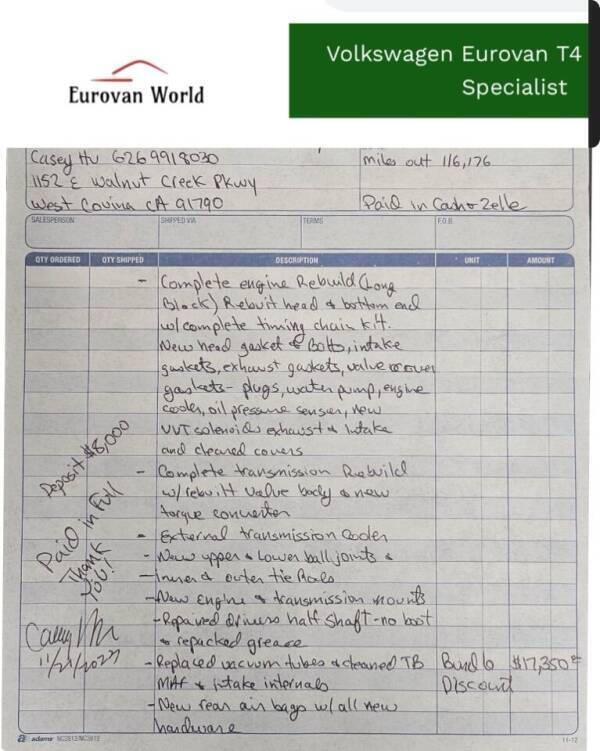 Eurovan World
Volkswagen Eurovan T4
Specialist
Casey Hu 626 9918030
miles out 116,176
1152 E Walnut Creek Pkwy
West Covina CA 91790
Paid in Cash & Zelle
SALESPERSON SHIPPED VIA TERMS F.O.B.
QTY ORDERED QTY SHIPPED DESCRIPTION UNIT AMOUNT
- Complete engine Rebuild (Long
Block) Rebuilt head & bottom end
w/complete timing chain kit.
New head gasket & Bolts, intake
gaskets, exhaust gaskets, valve cover
gaskets - plugs, water pump, engine
cooler, oil pressure sensor, new
VVT solenoids exhaust & Intake
and cleaned covers
Deposit $8,000
- Complete transmission Rebuild
w/rebuilt valve body & new
torque converter
Paid in Full
Thank
You!
- External transmission Cooler
- New upper & Lower ball joints &
- Inner & outer tie Rods
- New Engine & transmission mounts
- Repaired drivers half Shaft - no boot
& repacked grease
11/21/2023
- Replaced vacuum tubes & cleaned TB Bundle $17,350
MAF & intake internals Discount
- New rear air bags w/ all new
hardware
adams NC3812/NC3812 11-12